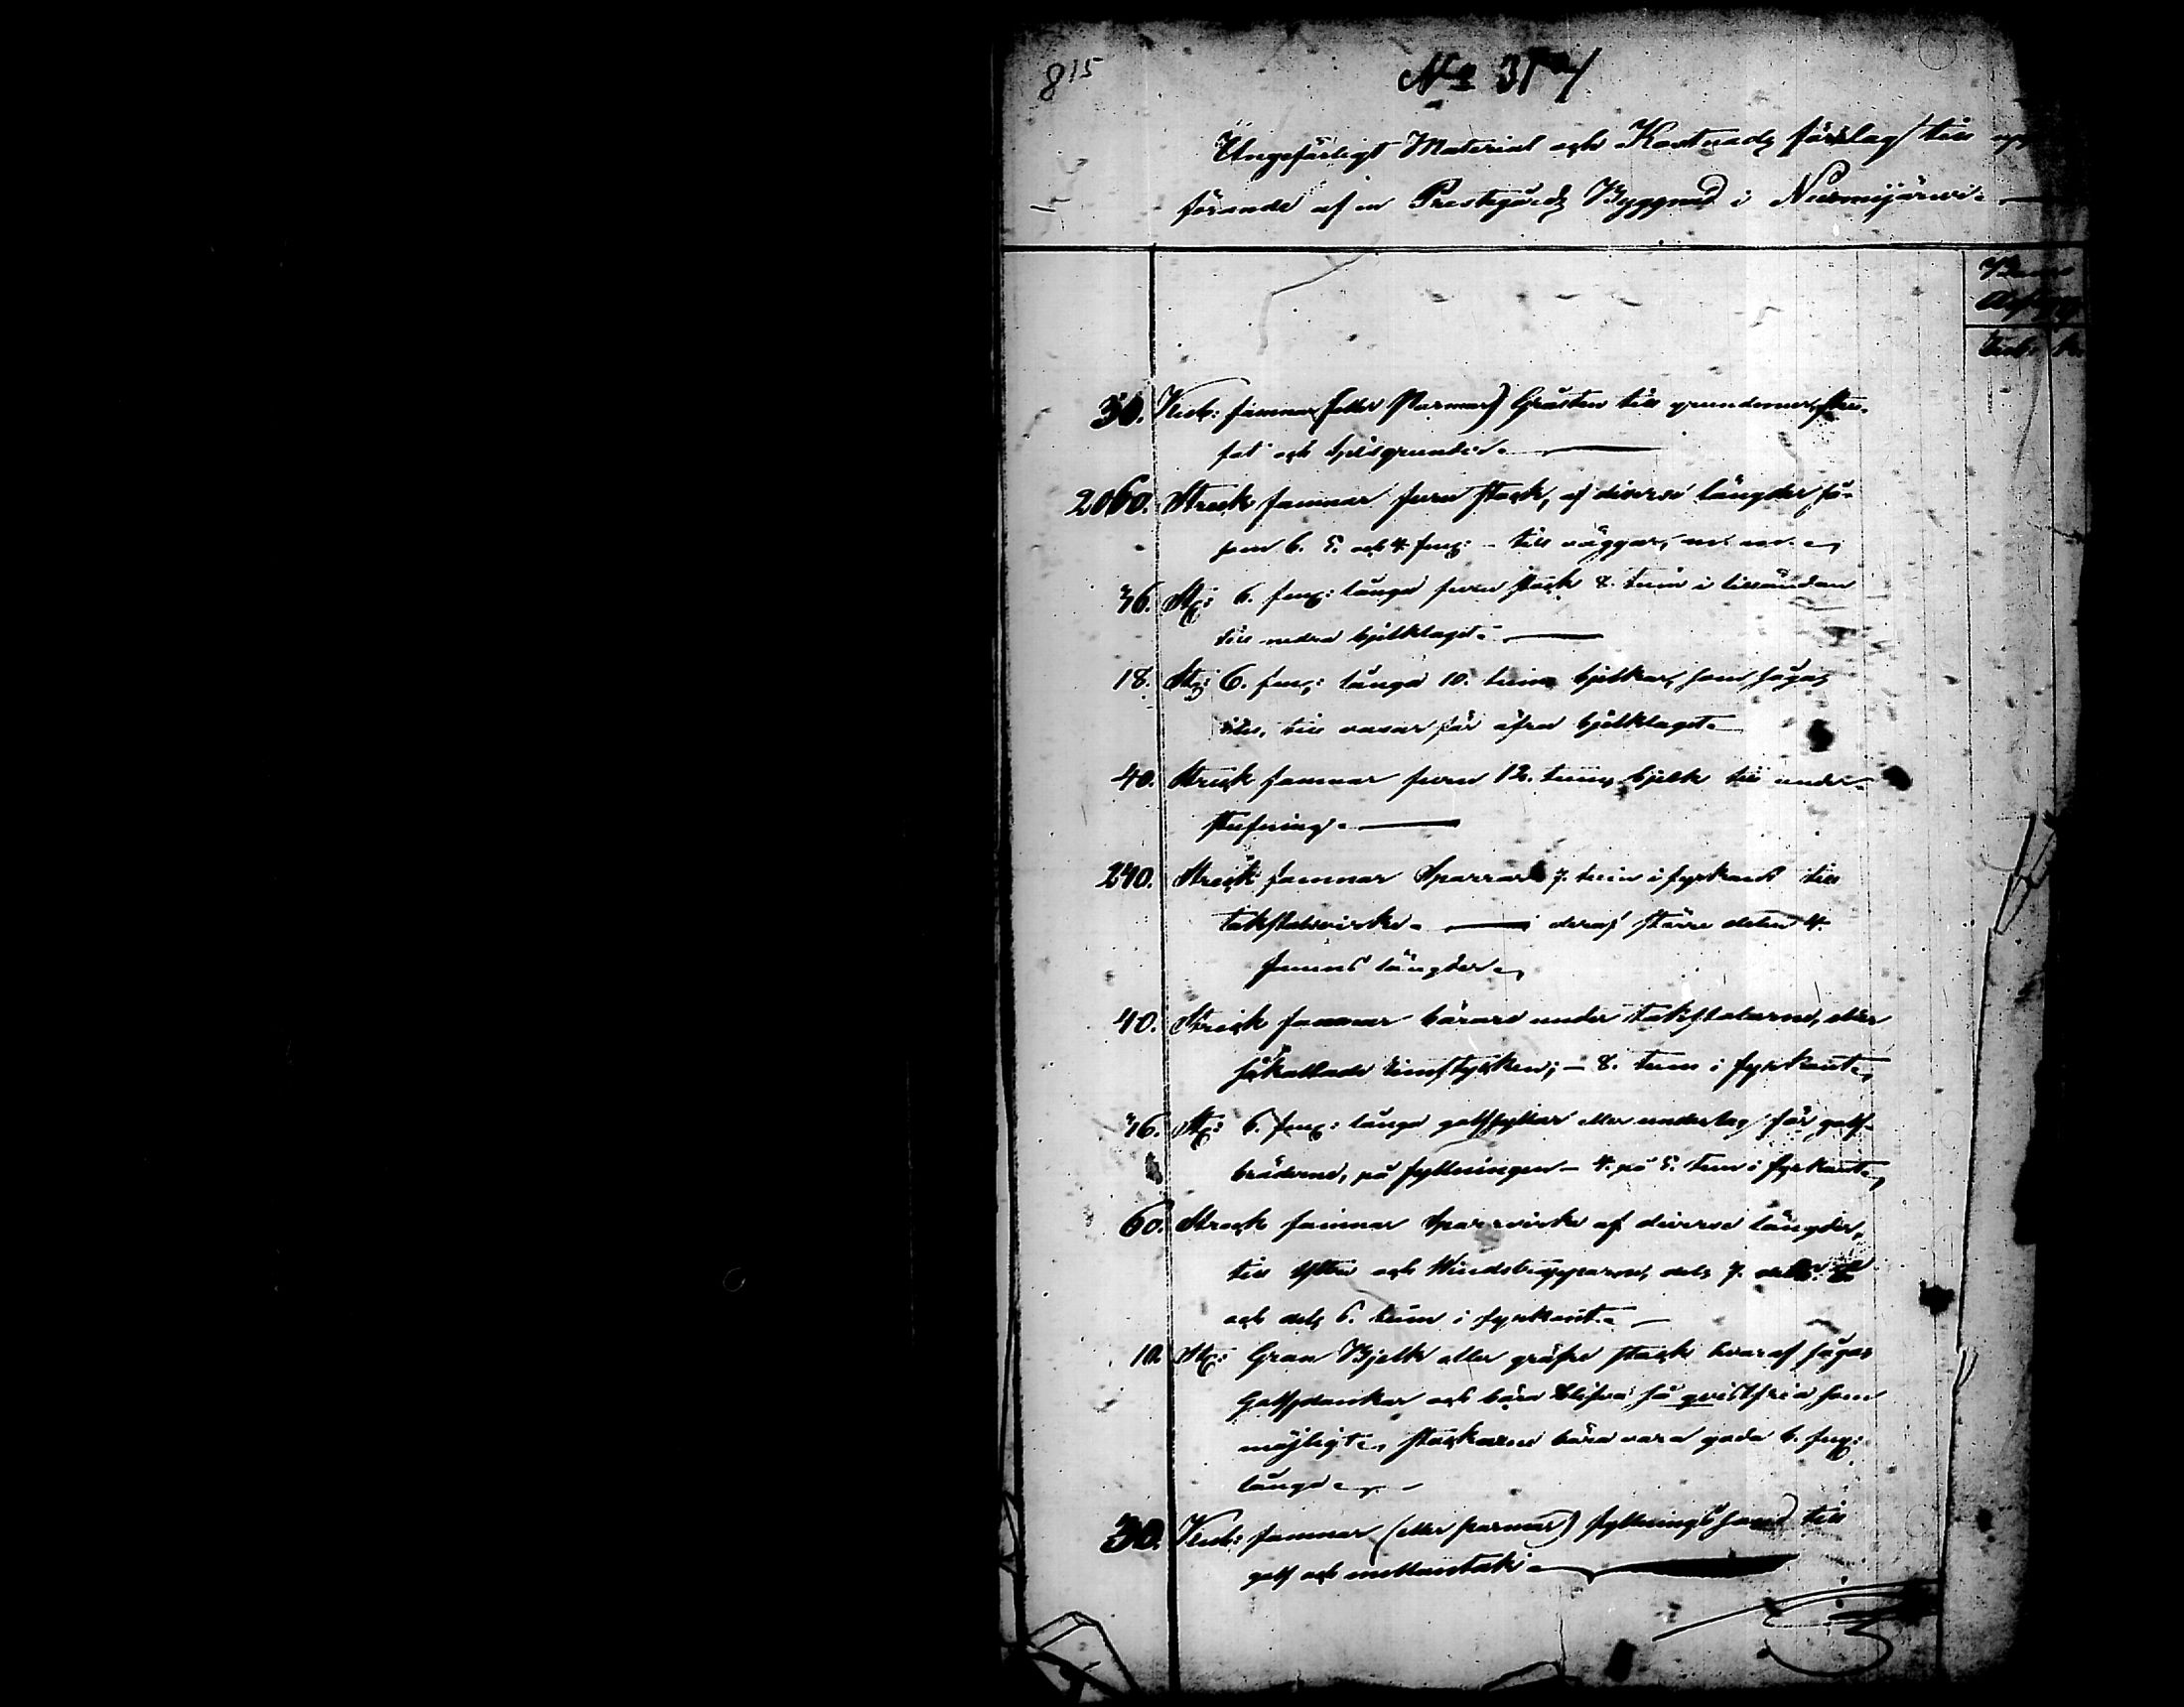 815
No 31
Ungefärligt Material och Kostnads förslag till upp
förande af en Prestgårds Byggnad i Nurmijärvi.
30. Kub: famnar (eller Parmar) Gråsten till grundmur, sten-
fot och spisgrunder.
2060. Streck famnar furu stock, af diverse längder så-
som 6. 5. och 4. fmg: – till väggar, m. m.
76. St: 6. fmg: långa furu stock 8. tum i lilländan
till nedra bjelklaget.
18. St: 6. fmg: långa 10. tums bjelkar, som sågas
itu, till vasar för öfra bjelklaget.
40. Streck famnar furu 12. tums bjelk till under-
240. Streck famnar Sparrar 7. tum i fyrkant till
takstolsvirke. deraf större delen 4.
famns längder.
40. Streck famnar bärare under takstolarne, eller
såkallade remstycken; – 8. tum i fyrkant.
76. St: 6. fmg: långa golfsyllar eller underlag för golf-
bräderne, på fyllningen – 4. på 5. tum i fyrkant.
60. Streck famnar Sparrvirke af diverse längder,
till och Windstrapporne, dels 7.
och dels 6. tum i fyrkant.
10. St: Gran Bjelk eller gröfre stock hvaraf sågas
Golfplankar och böra blifva så qvistfria som
möjligt, stockarne böra vara goda 6. fmg:
långa.
30. Kub: famnar (eller parmar) fyllningssand till
golf och mellantak.